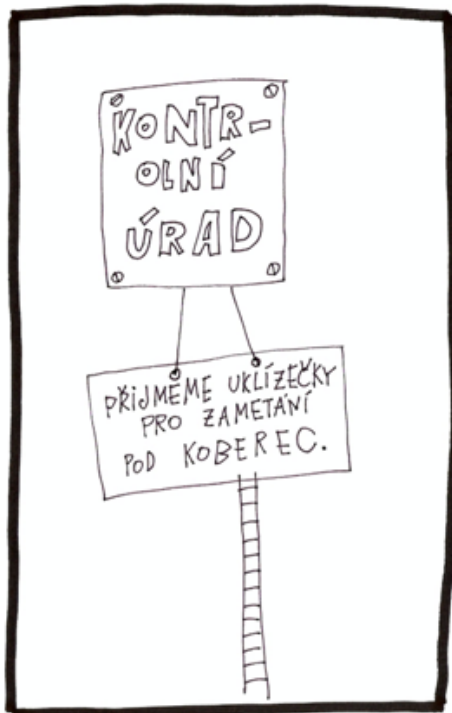 KONTR-
OLNÍ
ÚRAD
PŘIJMEME UKLÍZEČKY
PRO ZAMETÁNÍ
POD KOBEREC.